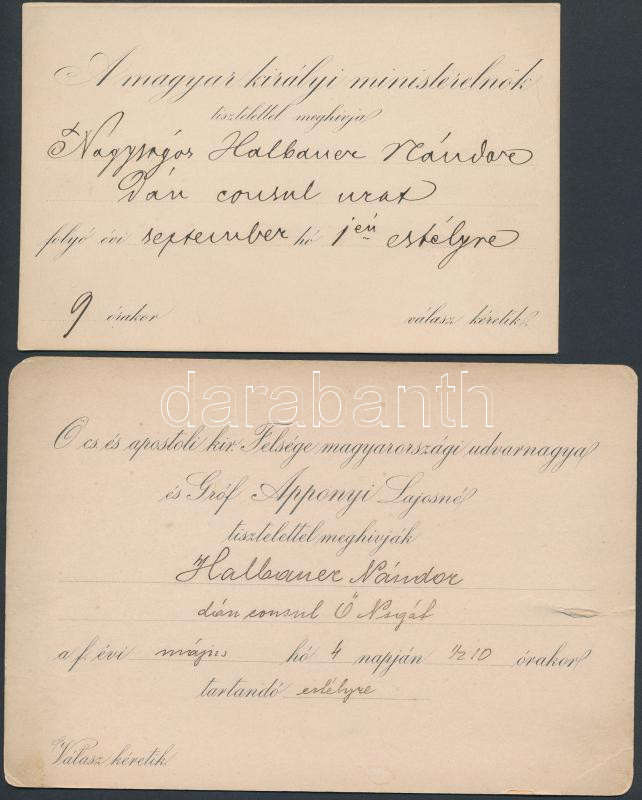 A magyar királyi ministerelnök
tisztelettel meghívja
Nagyságos Halbauer Nándor
Dán consul urat
folyó évi september hó 1jén estélyre
9 órakor válasz kéretik.
darabanth
Ő cs. és apostoli kir. Felsége magyarországi udvarnagya
és Gróf Apponyi Lajosné
tisztelettel meghívják
Halbauer Nándor
dán consul Ő Nsgát
a f. évi május hó 4 napján ½10 órakor
tartandó estélyre
Válasz kéretik.